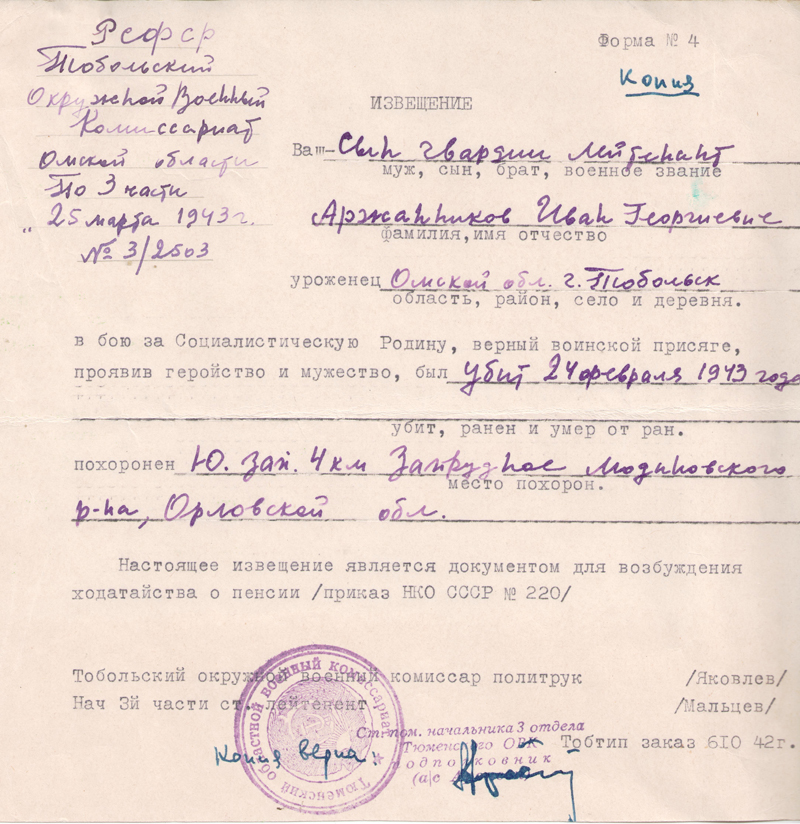 РСФСР
Тобольский
Окружной Военный
Комиссариат
Омской области
По 3 части
„ 25 марта 1943 г.
№ 3/2503
Форма № 4
Копия
ИЗВЕЩЕНИЕ
Ваш- Сын гвардии лейтенант
муж, сын, брат, военное звание
Аржанников Иван Георгиевич
фамилия,имя отчество
уроженец Омской обл. г. Тобольск
область, район, село и деревня.
в бою за Социалистическую Родину, верный воинской присяге,
проявив геройство и мужество, был убит 24 февраля 1943 года
убит, ранен и умер от ран.
похоронен Ю. зап. 4 км Запрудное
место похорон.
р-на, Орловской обл.
Настоящее извещение является документом для возбуждения
ходатайства о пенсии /приказ НКО СССР № 220/
Тобольский окружной военный комиссар политрук /Яковлев/
Нач 3й части ст. лейтенент /Мальцев/
Тюменский областной военный комиссариат
Ст. пом. начальника 3 отдела
Тюменского ОВК
подполковник
(а/с
Тобтип заказ 610 42г.
Копия верна: